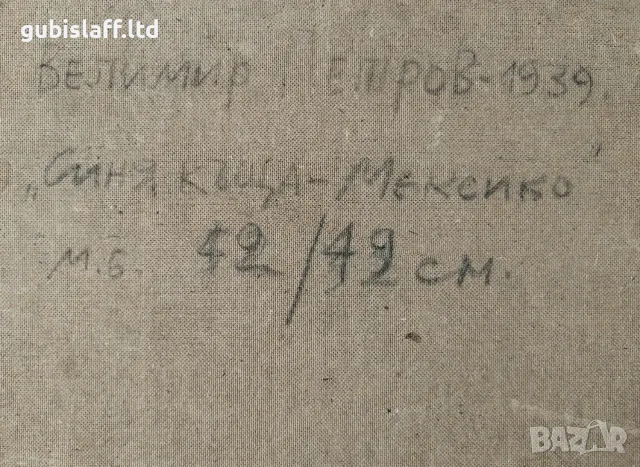 gubislaff.ltd
ВЕЛИМИР ПЕТРОВ-1939.
„СИНЯ КЪЩА-МЕКСИКО"
М.Б. 42/42 СМ.
BAZAR